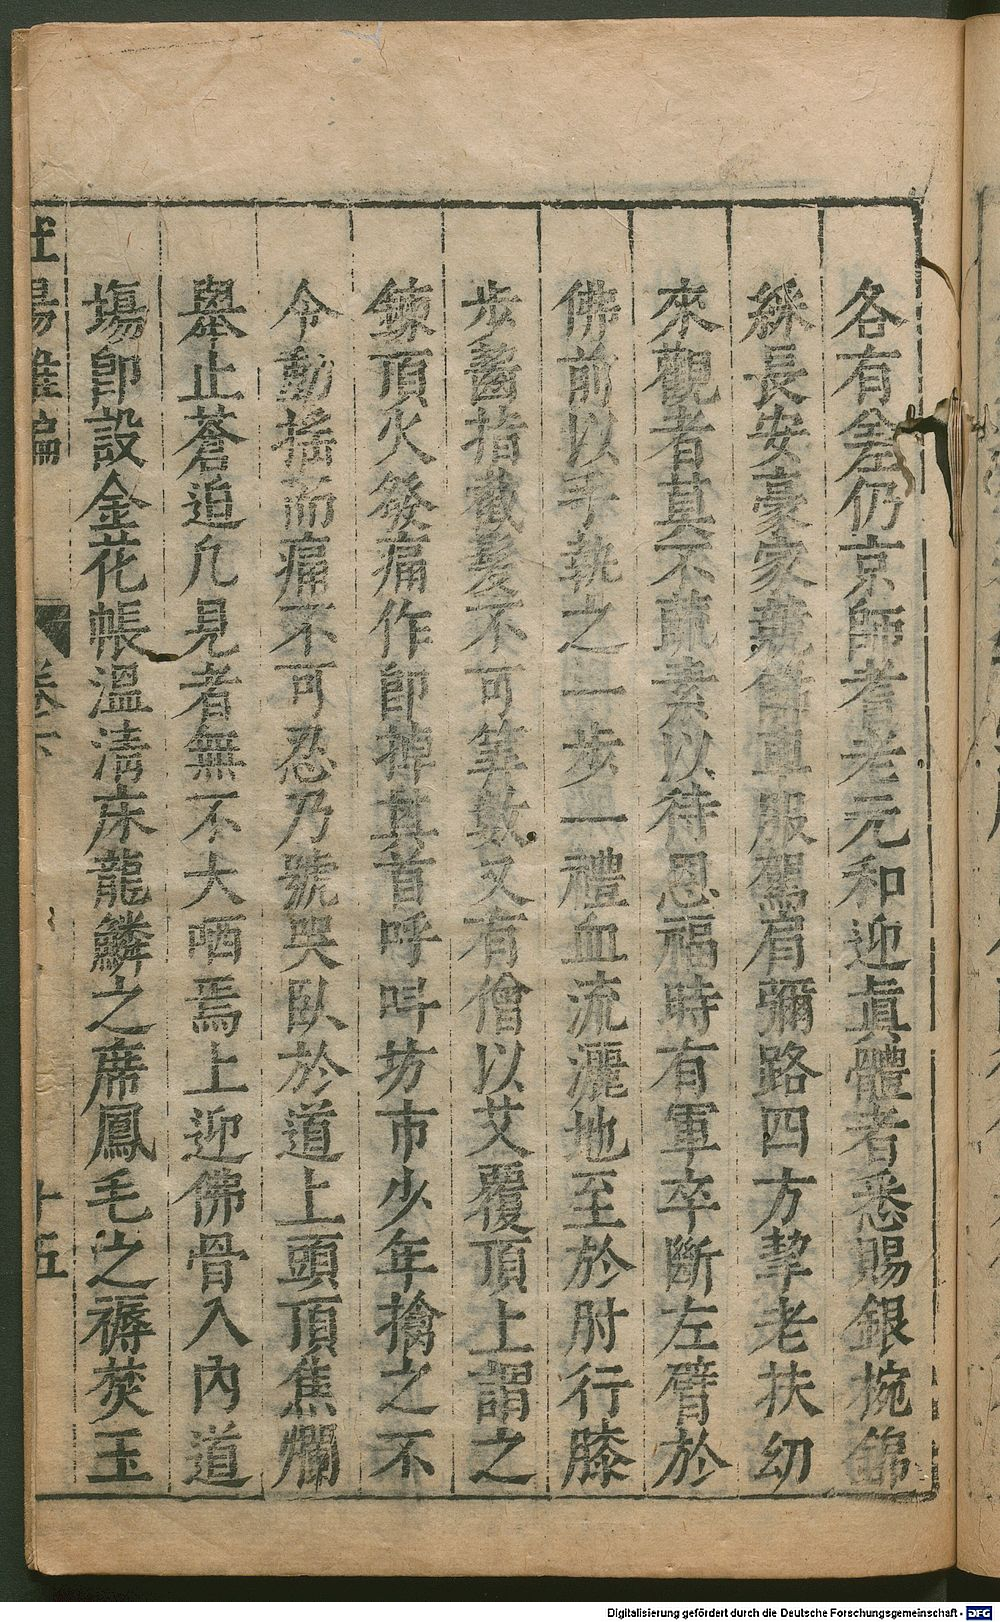 各有差仍京師耆老元和迎眞體者悉賜銀捥錦
綵長安豪家競餙車服駕肩彌路四方挈老扶幼
來觀者莫不蔬素以待恩福時有軍卒斷左臂於
佛前以手執之一步一禮血流灑地至於肘行膝
步齧指截髮不可筭數又有僧以艾覆頂上謂之
鍊頂火發痛作即掉其首呼呌坊市少年擒之不
令動揺而痛不可忍乃號哭臥於道上頭頂焦爛
舉止蒼迫凢見者無不大哂焉上迎佛骨入內道
塲卽設金花帳溫淸床龍鱗之席鳳毛之褥焚玉
杜陽雜編
卷下
十五
Digitalisierung gefördert durch die Deutsche Forschungsgemeinschaft - DFG